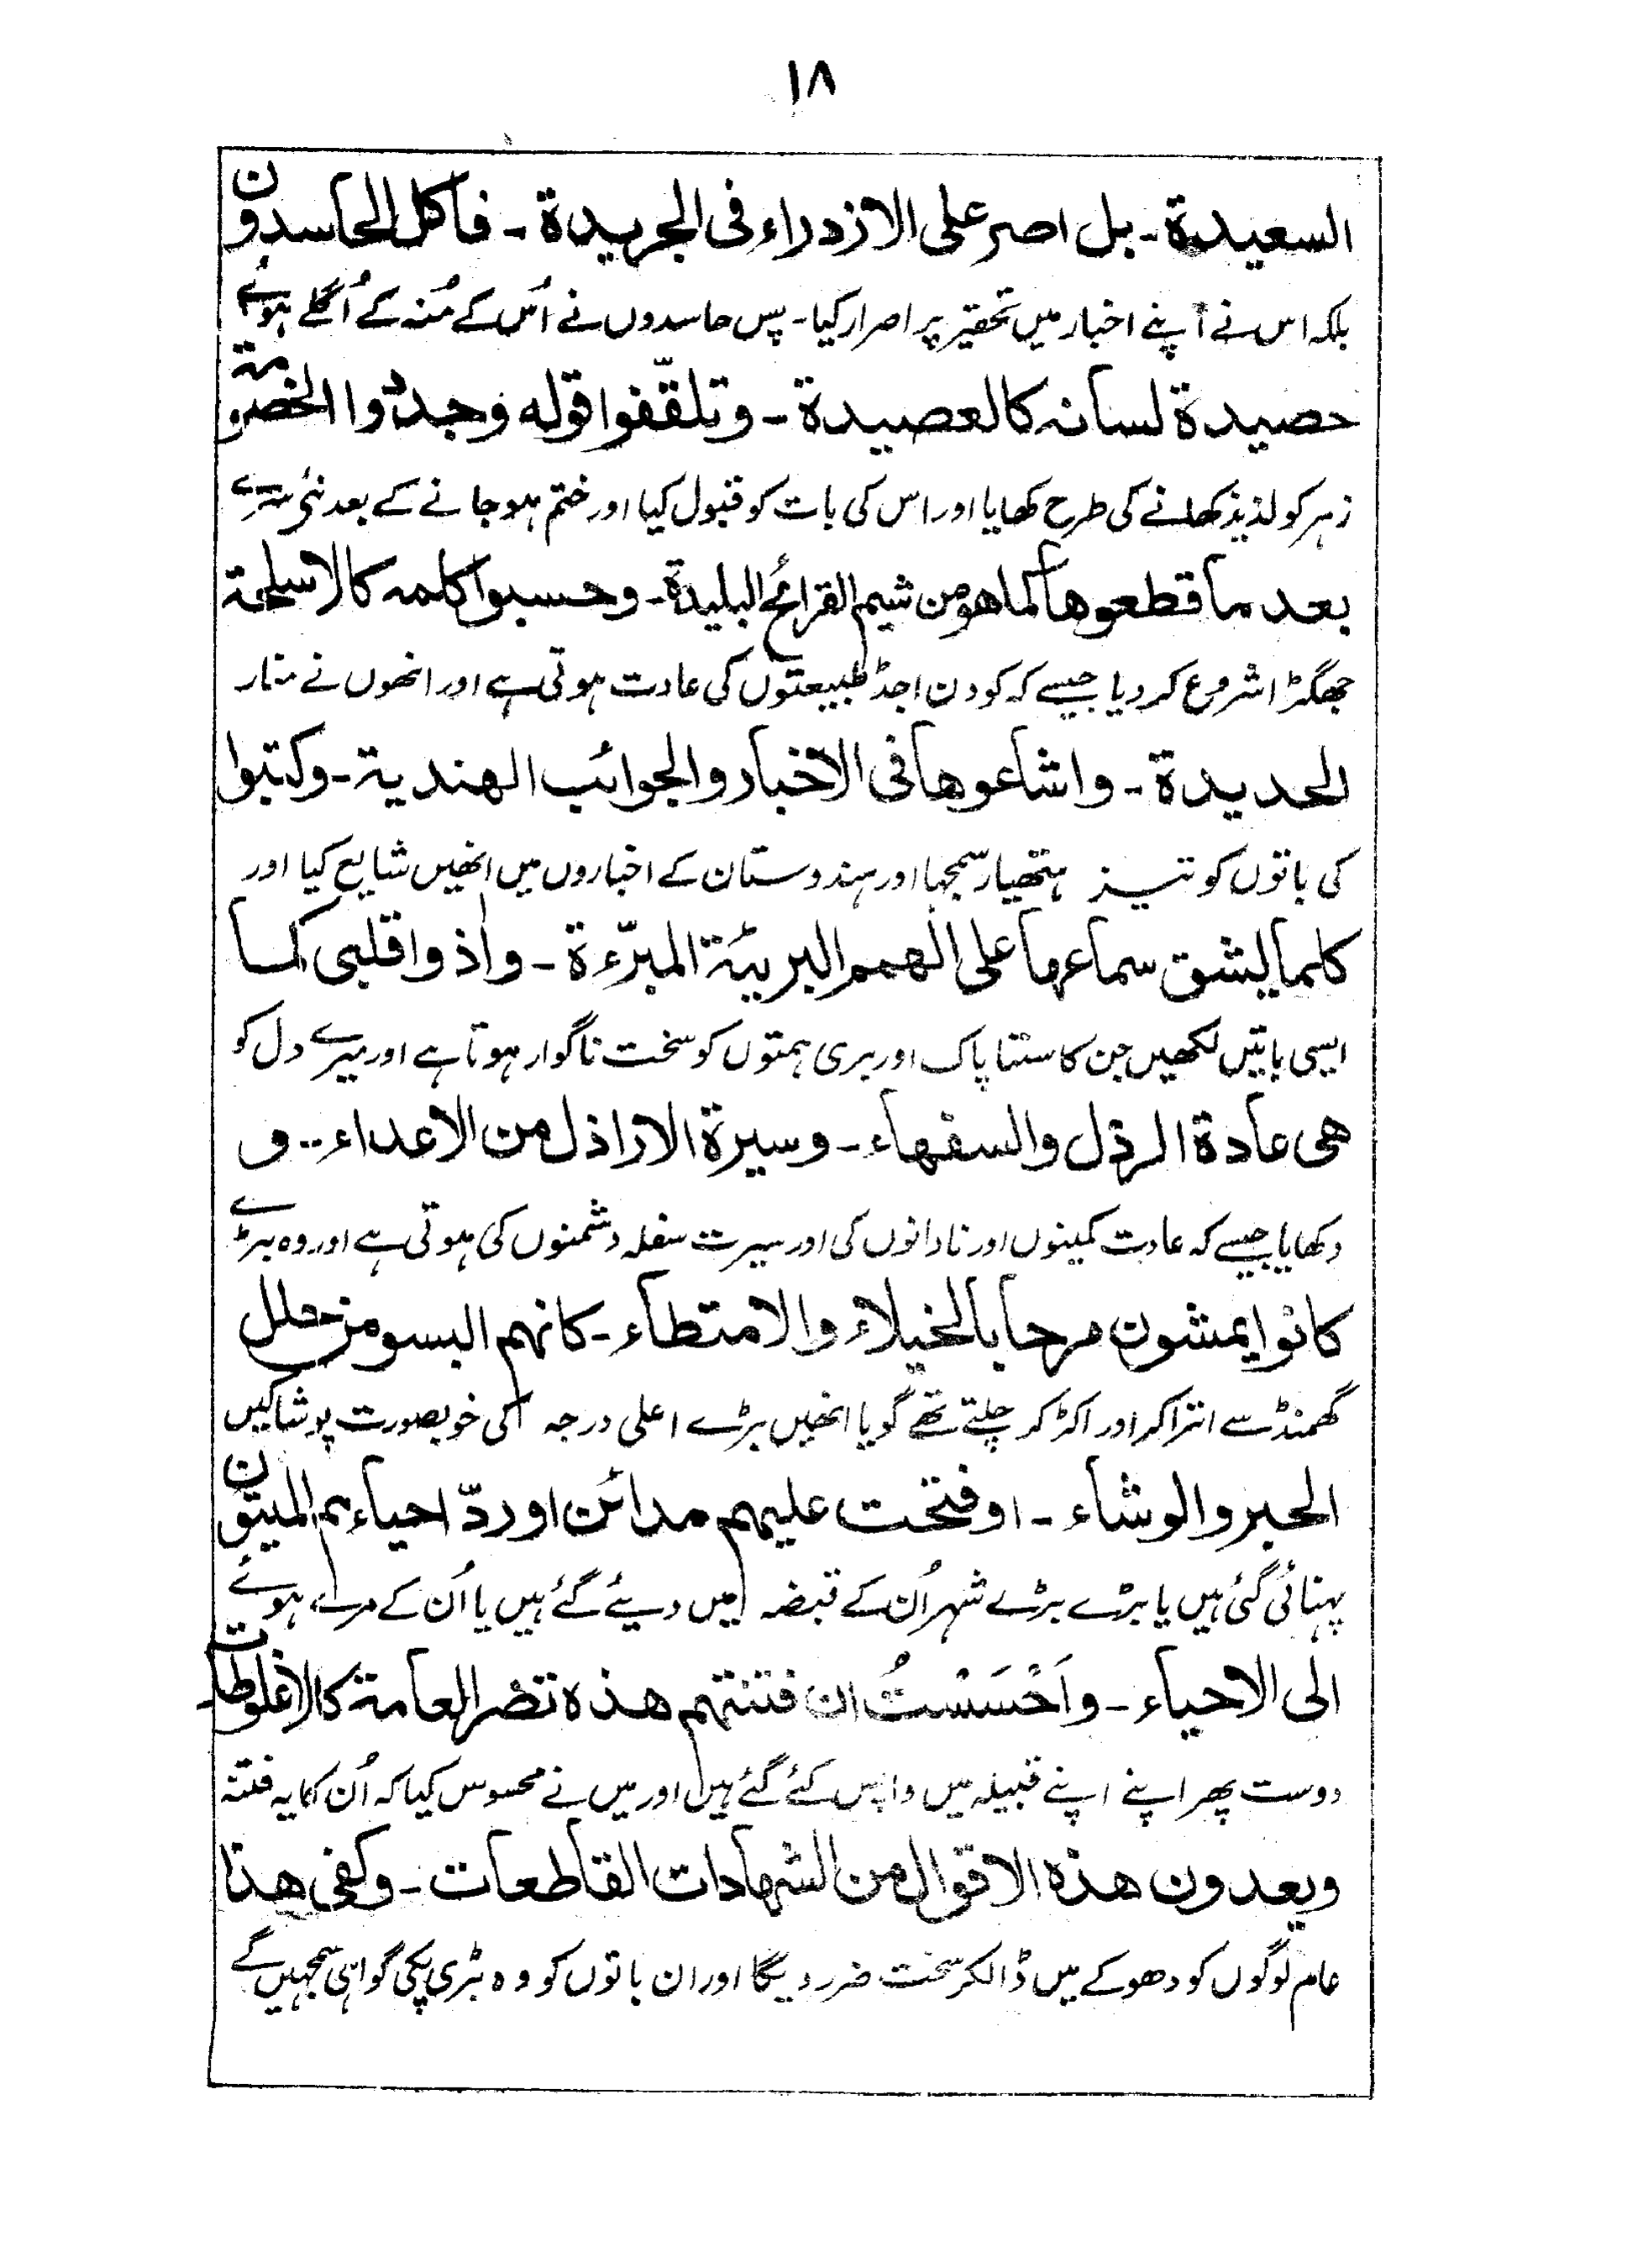 ١٨
السعيدة - بل اصر على الازدراء فى الجريدة - فاكل الحاسدون
بلکہ اس نے اپنے اخبار میں تحقیر پر اصرار کیا - پس حاسدوں نے اُس کے مُنہ کے اُگلے ہوئے
حصيدة لسانه كالعصيدة - وتلقّفوا قوله وجدّدوا الخصومة
زہر کو لذیذ کھانے کی طرح کھایا اور اس کی بات کو قبول کیا اور ختم ہو جانے کے بعد نئی سرے
بعد ما قطعوها كما هو من شيم القرائح البليدة - وحسبوا كلمه كالاسلحة
جھگڑا شروع کر دیا جیسے کہ کودن اجڈ طبیعتوں کی عادت ہوتی ہے اور انھوں نے منار
الحديدة - واشاعوها فى الاخبار والجوائب الهندية - وكتبوا
کی باتوں کو تیز ہتھیار سمجہا اور ہندوستان کے اخباروں میں انھیں شایع کیا اور
كلما يشق سماعها على الهمم البريئة المبرّءة - واٰذوا قلبى كما
ایسی باتیں لکھیں جن کا سننا پاک اور بری ہمتوں کو سخت ناگوار ہوتا ہے اور میرے دل کو
هى عادة الرذل والسفهاء - وسيرة الاراذل من الاعداء - و
دکھایا جیسے کہ عادت کمینوں اور نادانوں کی اور سیرت سفلہ دشمنوں کی ہوتی ہے اور وہ بڑے
كانوا يمشون مرحا بالخيلاء والامتطاء - كانهم البسو من حلل
گھمنڈ سے اتراکر اور اکڑ کر چلتے تھے گویا انھیں بڑے اعلی درجہ کی خوبصورت پوشاکیں
الحبر والوشاء - اوفتحت عليهم مدائن اوردّ احياءهم الميتون
پہنائی گئی ہیں یا بڑے بڑے شہر اُن کے قبضہ میں دیئے گئے ہیں یا اُن کے مرے ہوئے
الى الاحياء - واَحْسَسْتُ ان فتنتهم هذه تضر العامة كالاغلوطات
دوست پھر اپنے اپنے قبیلہ میں واپس کئے گئے ہیں اور میں نے محسوس کیا کہ اُن کا یہ فتنہ
ويعدون هذه الاقوال من الشهادات القاطعات - وكفى هذا
عام لوگوں کو دھوکے میں ڈالکر سخت ضرر دیگا اور ان باتوں کو وہ بڑی پکی گواہی سمجہیں گے